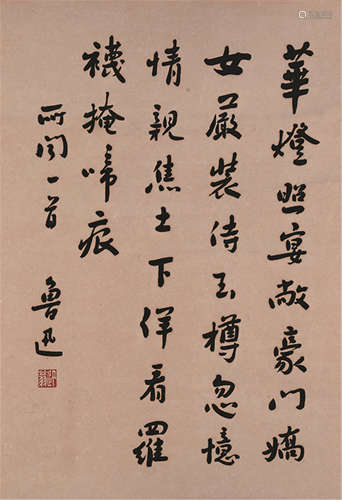 華燈照宴敞豪門嬌
女嚴裝侍玉樽忽憶
情親焦土下佯看羅
襪掩啼痕
所聞一首
魯迅